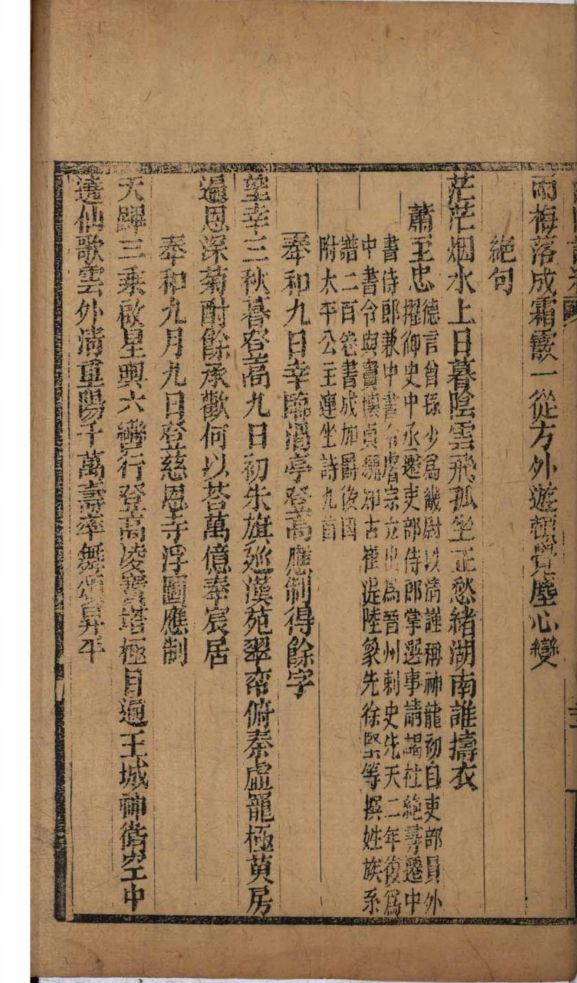 雨梅落成霜霰一從方外遊頓覺塵心變
絕句
茫茫烟水上日暮陰雲飛孤坐正愁緒湖南誰擣衣
蕭至忠
德言曾孫少為畿尉以清謹稱神龍初自吏部員外
擢御史中丞遷吏部侍郎掌選事請謁杜絕尋遷中
書侍郎兼中書令睿宗立出為晉州刺史先天二年復為
中書令與竇懷貞魏知古崔湜陸象先徐堅等撰姓族系
譜二百卷書成加爵後因
附太平公主連坐詩九首
奉和九日幸臨渭亭登高應制得餘字
望幸三秋暮登高九日初朱旗巡漢苑翠帟俯秦虛寵極萸房
遍恩深菊酎餘承歡何以荅萬億奉宸居
奉和九月九日登慈恩寺浮圖應制
天蹕三乘啟星輿六轡行登高凌寶塔極目遍王城神衛空中
遶仙歌雲外清重陽千萬壽率舞頌昇平